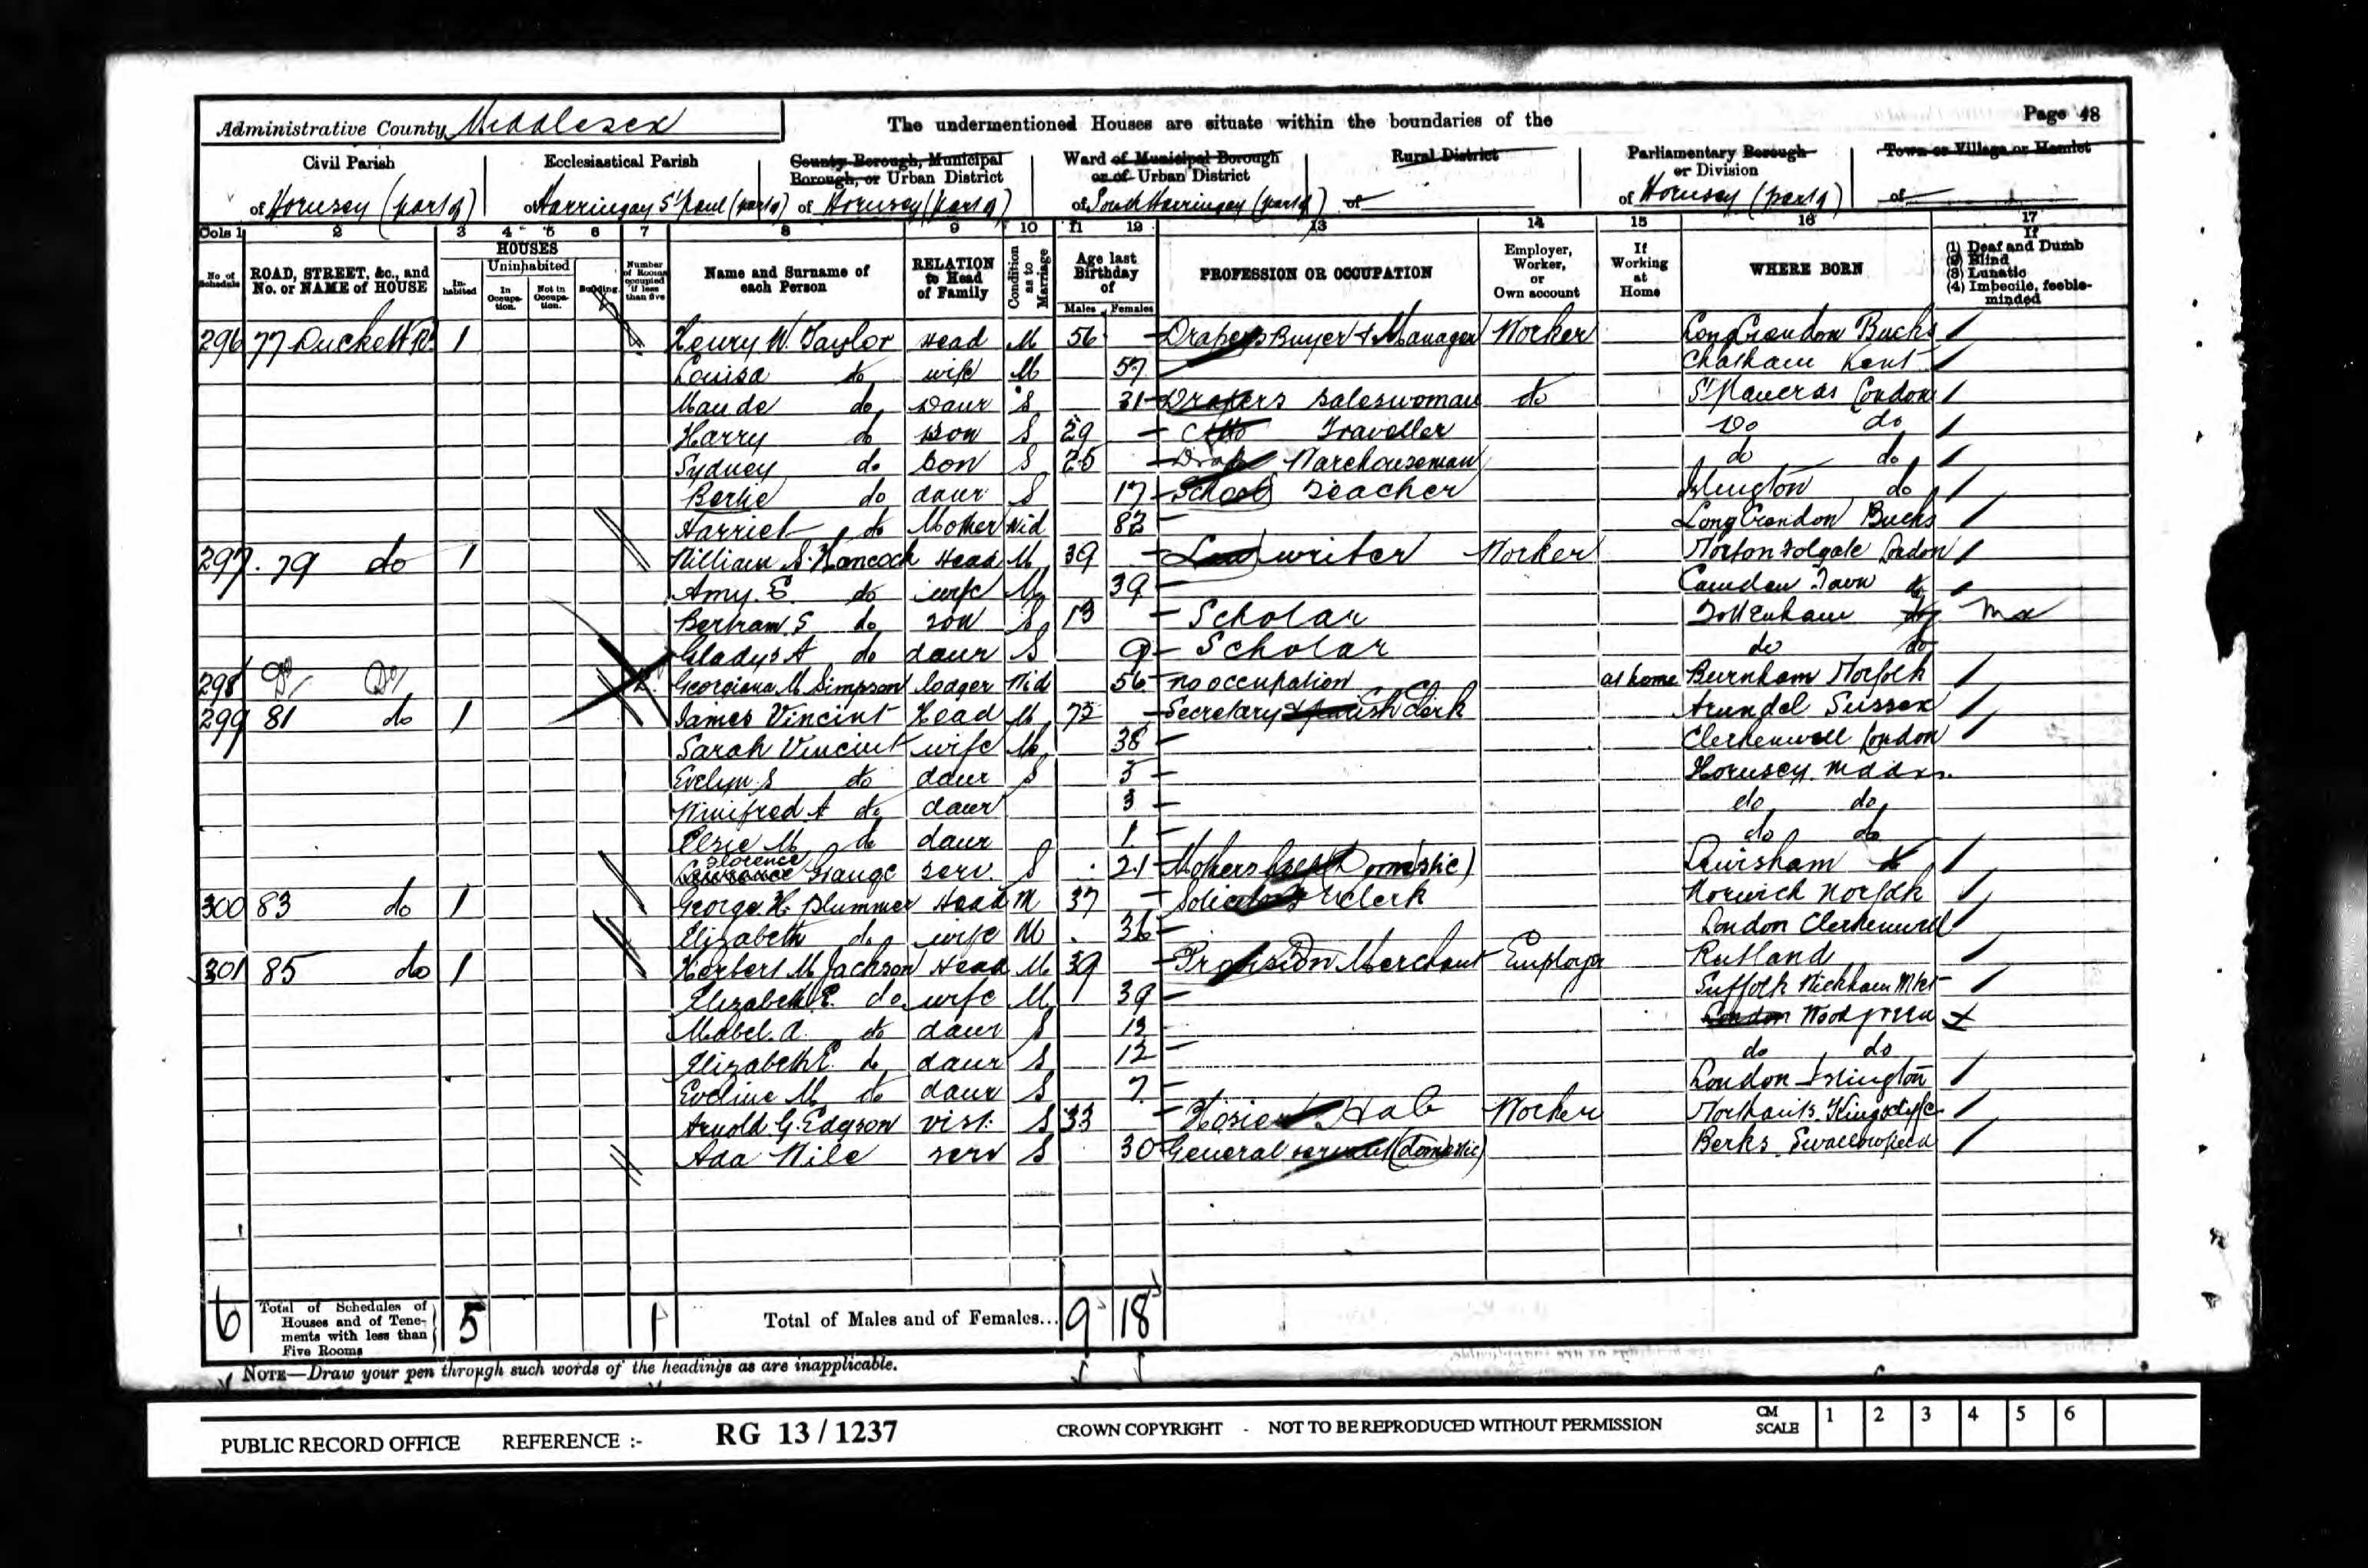 Administrative County Middlesex The undermentioned Houses are situate within the boundaries of the Page 48
Civil Parish Ecclesiastical Parish County Borough, Municipal Borough, or Urban District Ward of Municipal Borough or of Urban District Rural District Parliamentary Borough or Division Town or Village or Hamlet
of Hornsey (part of) of Harringay St Paul (part of) of Hornsey (part of) of South Harringay (part of) of of Hornsey (part of) of
Cols 1 2 3 4 5 6 7 8 9 10 11 12 13 14 15 16 17
No. of Schedule ROAD, STREET, &c., and No. or NAME of HOUSE HOUSES Inhabited Uninhabited In Occupation. Not in Occupation. Building Number of Rooms occupied if less than five Name and Surname of each Person RELATION to Head of Family Condition as to Marriage Age last Birthday of Males Females PROFESSION OR OCCUPATION Employer, Worker, or Own account If Working at Home WHERE BORN If (1) Deaf and Dumb (2) Blind (3) Lunatic (4) Imbecile, feeble-minded
296 77 Duckett Rd 1 Henry W. Taylor Head M 56 Drapers Buyer & Manager Worker Long Crendon Bucks
Louisa do wife M 57 Chatham Kent
Maude do Daur S 31 Drapers Saleswoman do St Pancras London
Harry do Son S 29 Traveller Do do
Sydney do Son S 25 Warehouseman do do
Bertie do daur S 17 School Teacher Islington do
Harriet do Mother Wid 82 Long Crendon Bucks
297 79 do 1 William S. Hancock Head M 39 writer Worker Norton Folgate London
Amy. E. do wife M 39 Camden Town do
Bertram S do son S 13 Scholar Tottenham do Mx
Gladys A do daur S 9 Scholar do do
298 Do Do Georgiana M Simpson lodger Wid 56 no occupation at home Burnham Norfolk
299 81 do 1 James Vincint Head M 72 Secretary & parish Clerk Arundel Sussex
Sarah Vincint wife M 38 Clerkenwell London
Evelyn S do daur S 5 Hornsey Middx.
Winifred A do daur 3 do do
Elsie M do daur 1 do do
Florence Grange serv. S 21 Mothers help (Domestic) Lewisham
300 83 do 1 George H. Plummer Head M 37 Solicitors Clerk Norwich Norfolk
Elizabeth do wife M 36 London Clerkenwell
301 85 do 1 Herbert M Jackson Head M 39 Provision Merchant Employer Rutland
Elizabeth E. do wife M 39 Suffolk Wickham Mkt
Mabel. A. do daur S 13 London Wood green
Elizabeth E. do daur S 12 do do
Eveline M do daur S 7 London Islington
Arnold G. Edgson vist. S 33 Hosier Worker Northants Kingscliffe
Ada Wile serv S 30 General servant (domestic) Berks Swallowfield
6 Total of Schedules of Houses and of Tenements with less than Five Rooms 5 1 Total of Males and of Females... 9 18
NOTE—Draw your pen through such words of the headings as are inapplicable.
PUBLIC RECORD OFFICE REFERENCE :- RG 13 / 1237 CROWN COPYRIGHT - NOT TO BE REPRODUCED WITHOUT PERMISSION CM SCALE 1 2 3 4 5 6